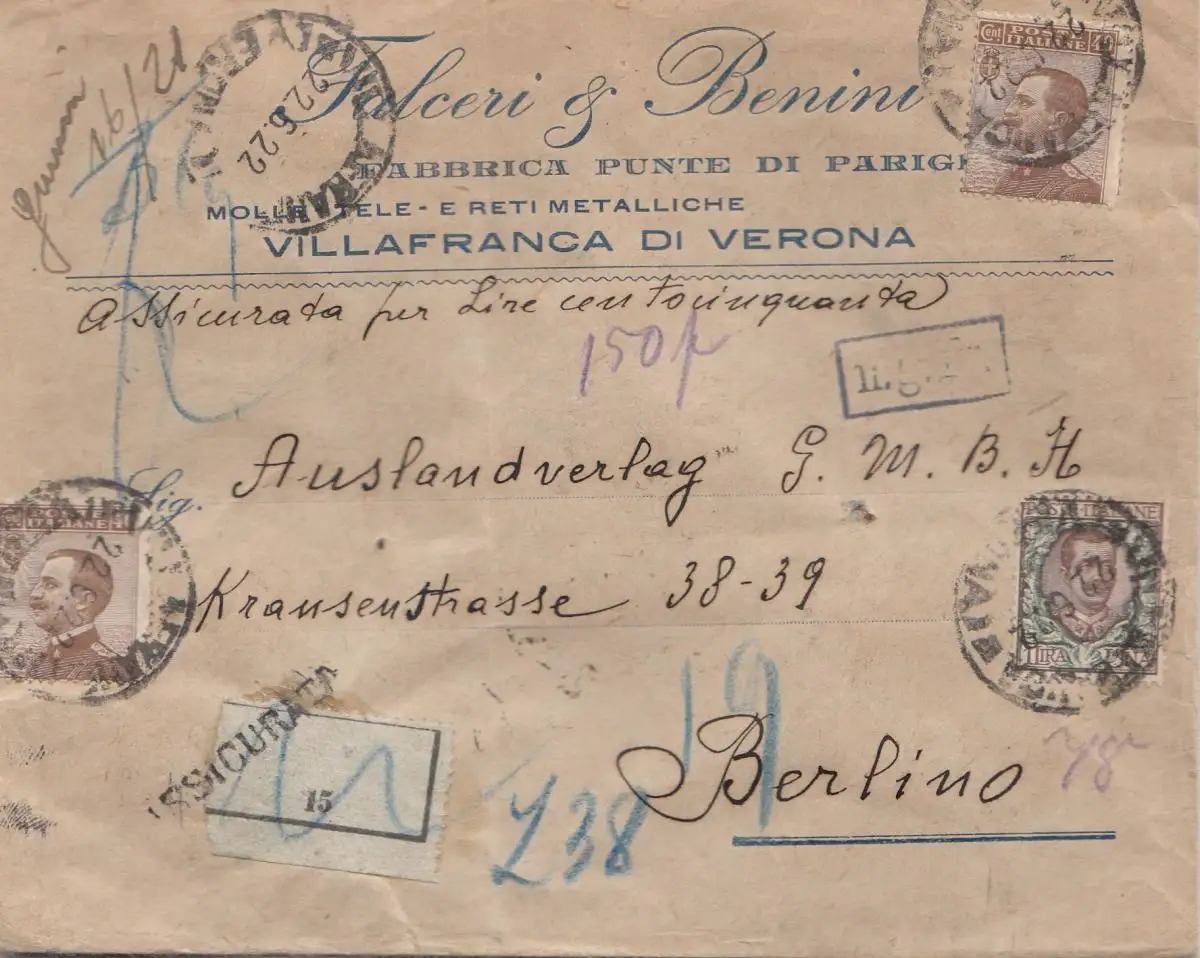 16/21
22.6.22
Falceri & Benini
FABBRICA PUNTE DI PARIGI
MOLLE - TELE - E RETI METALLICHE
VILLAFRANCA DI VERONA
Cent POSTE 40
ITALIANE
Assicurata per Lire centocinquanta
150
Sig. Auslandverlag G. M. B. H
Krausenstrasse 38-39
Berlino
POSTE
ITALIANE
POSTE ITALIANE
1 LIRA UNA
ASSICURATA
15
19
238